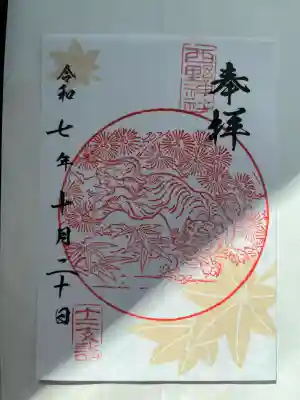 奉拝
西野神社
令和七年十月二十日